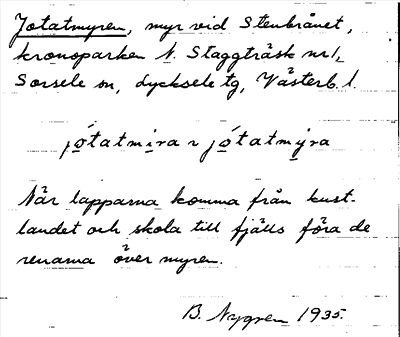 Jotatmyren, myr vid Stenbrånet,
kronoparken N. Staggträsk nr 1,
Sorsele sn, Lycksele tg, Västerb. l.
jótatmira ~ jótatmýra
När lapparna komma från kust-
landet och skola till fjälls föra de
renarna över myren.
B. Nygren 1935.